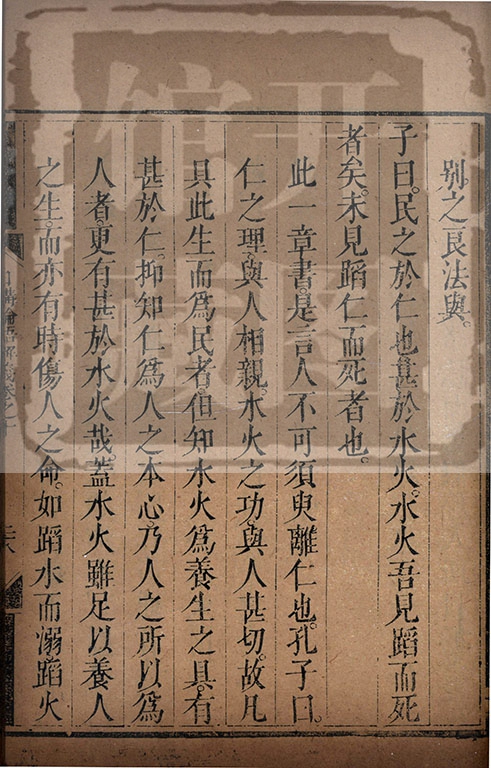 別之良法與。
子曰。民之於仁也。甚於水火。水火吾見蹈而死
者矣。未見蹈仁而死者也。
此一章書。是言人不可須臾離仁也。孔子曰。
仁之理。與人相親。水火之功。與人甚切。故凡
具此生而爲民者。但知水火爲養生之具。有
甚於仁。抑知仁爲人之本心。乃人之所以爲
人者。更有甚於水火哉。蓋水火雖足以養人
之生。而亦有時傷人之命。如蹈水而溺。蹈火